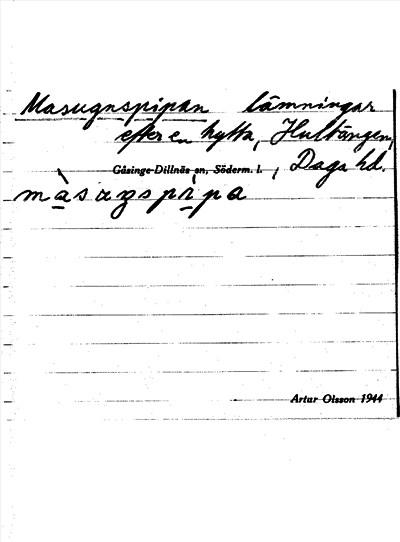 Masugnspipan lämningar
efter en hytta, Hultängen,
Gåsinge-Dillnäs sn, Söderm. l., Daga hd.
Artur Olsson 1944